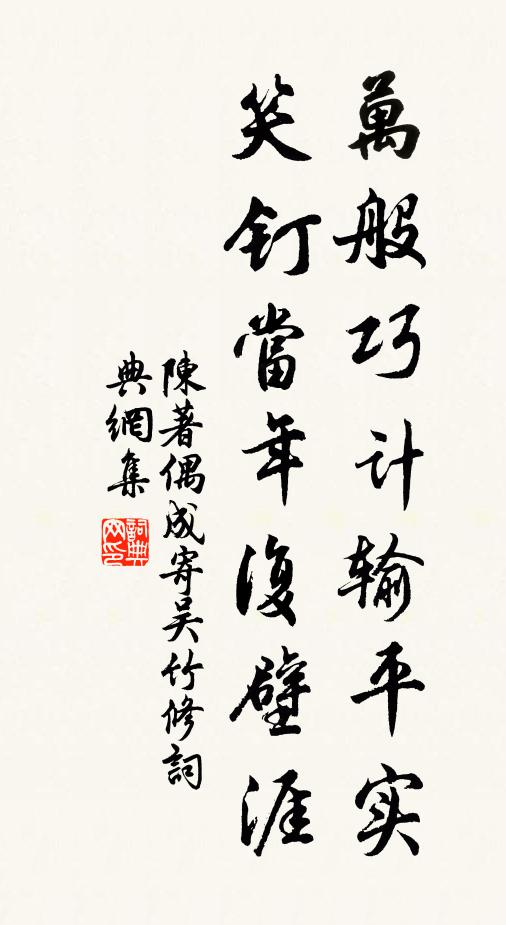 萬般巧计输平实
笑钉當年復壁涯
陳著偶成寄吴竹修詞
典網集
詞典网印